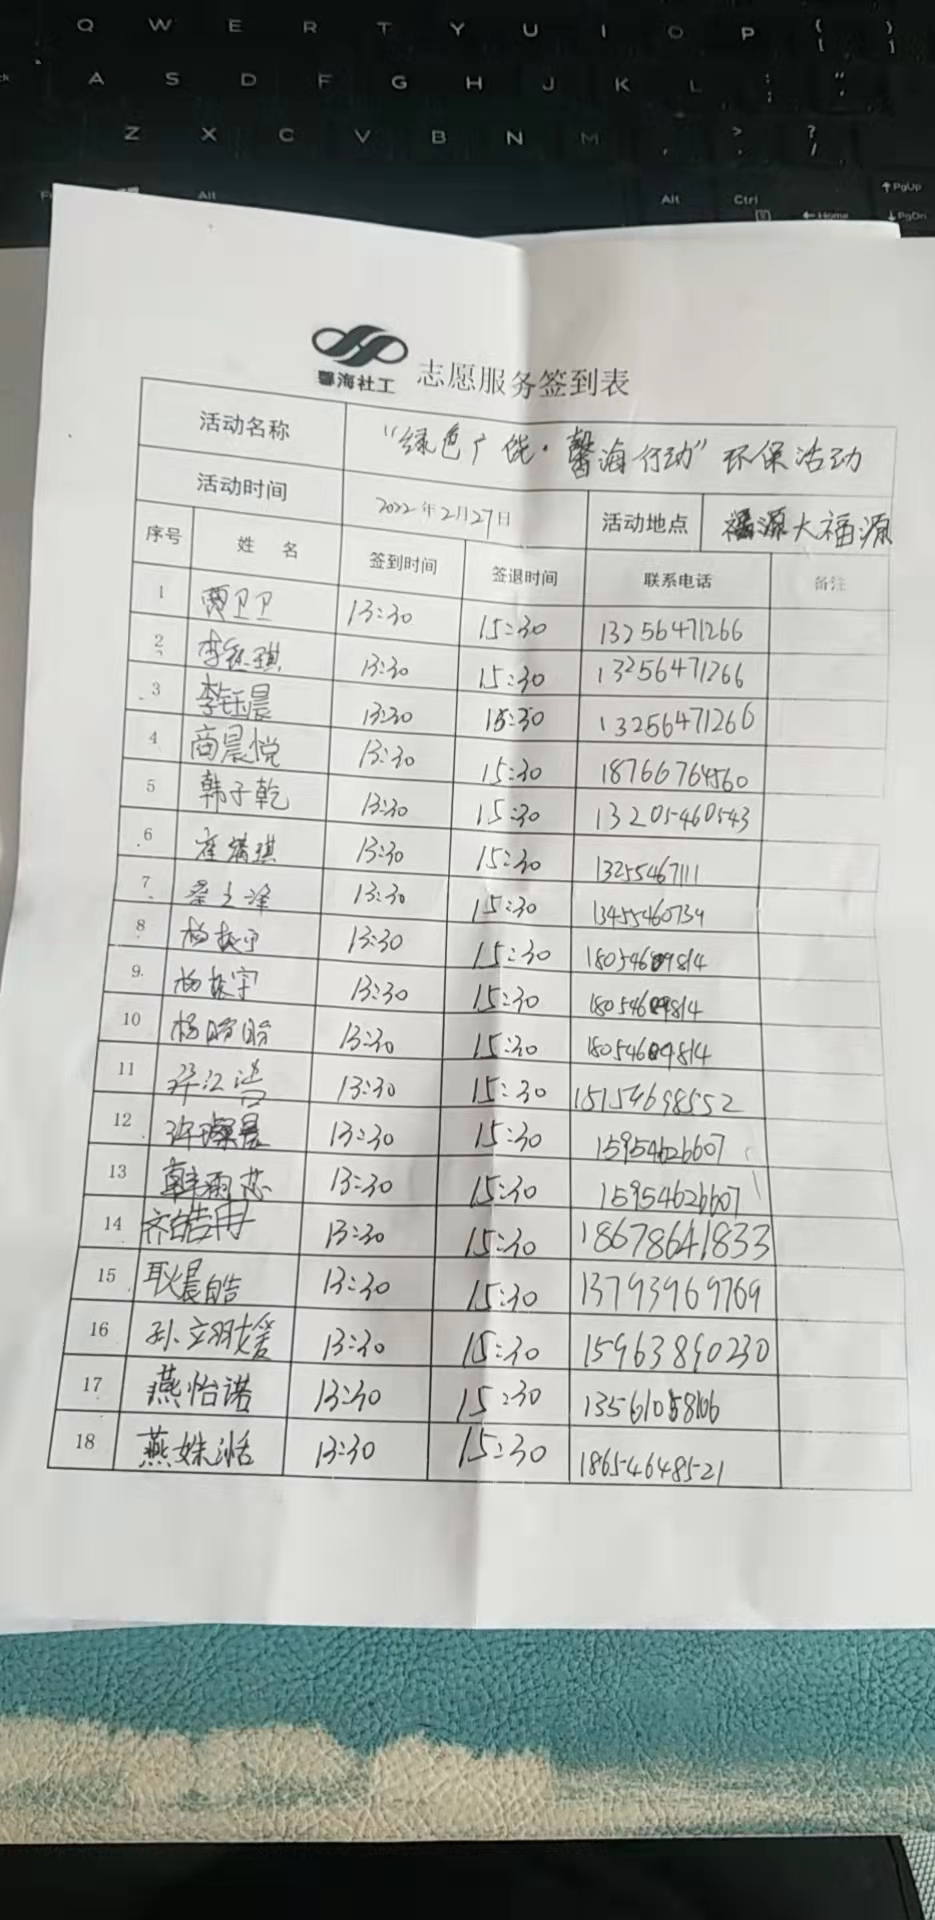 Q W E R T Y U I O P { [ } ]
A S D F G H J K L : ; " '
Z X C V B N M , > . ? /
Alt Alt Ctrl ↑PgUp
←Home ↓PgDn
馨海社工 志愿服务签到表
活动名称 “绿色广饶·馨海行动”环保活动
活动时间 2022年2月27日 活动地点 大福源
序号 姓 名 签到时间 签退时间 联系电话 备注
1 贾卫卫 13:30 15:30 13256471266
2 李钰琪 13:30 15:30 13256471266
3 李钰晨 13:30 15:30 13256471266
4 商晨悦 13:30 15:30 18766764560
5 韩子乾 13:30 15:30 13205460543
6 13:30 15:30 13255467111
7 13:30 15:30 13455460734
8 杨振宁 13:30 15:30 18054609814
9 杨振宇 13:30 15:30 18054609814
10 杨盼盼 13:30 15:30 18054609814
11 13:30 15:30 15154698552
12 许璨晨 13:30 15:30 15954626607
13 韩雨芯 13:30 15:30 15954626607
14 齐皓冉 13:30 15:30 18678641833
15 耿晨皓 13:30 15:30 13793969769
16 孙立翔媛 13:30 15:30 15963890230
17 燕怡诺 13:30 15:30 13561058106
18 燕姝恬 13:30 15:30 18654648521